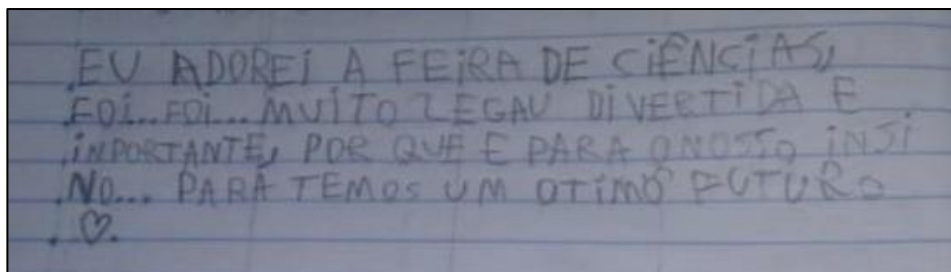 EU ADOREI A FEIRA DE CIÊNCIAS,
FOI...FOI... MUITO LEGAU DIVERTIDA E
INPORTANTE, POR QUE E PARA O NOSSO INSI
NO... PARA TEMOS UM OTIMO FUTURO
♡.